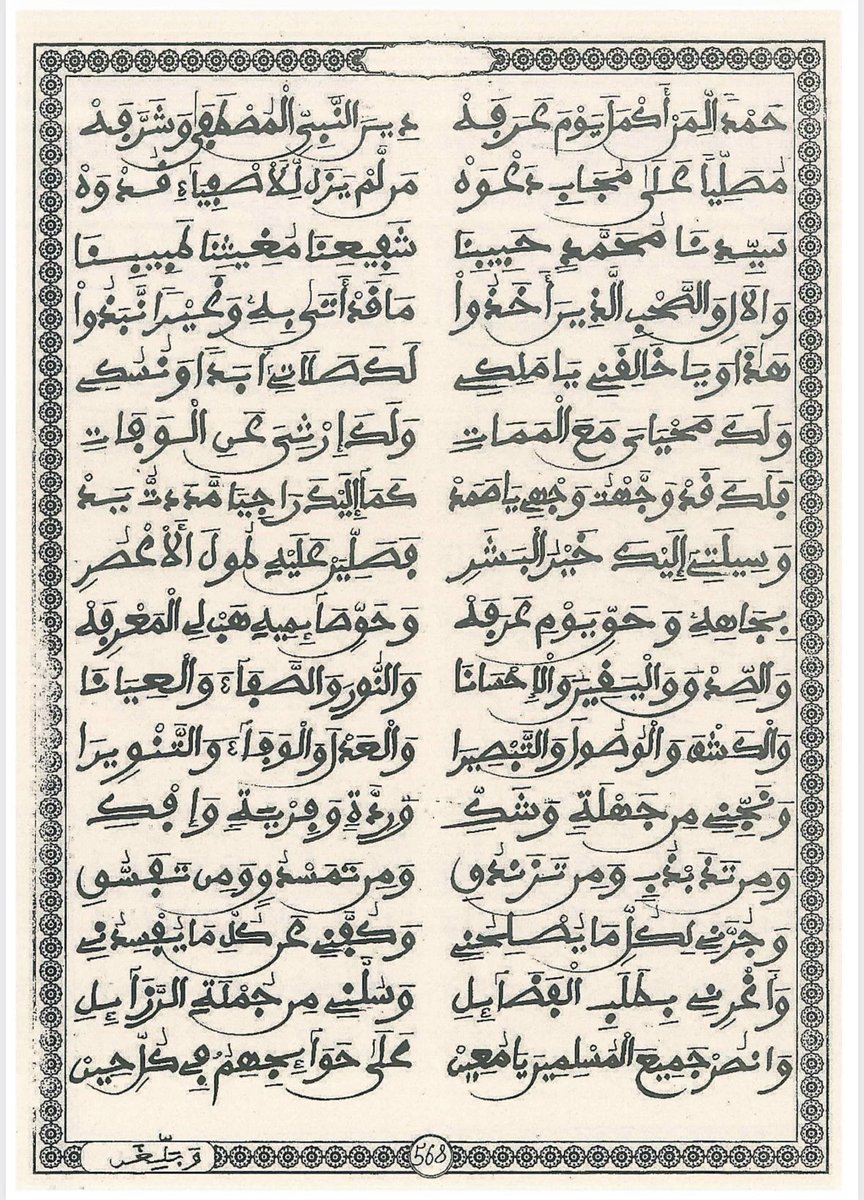 حَمْدًا لِّمَنْ أَكْمَلَ يَوْمَ عَرَفَهْ دِينَ النَّبِيِّ الْمُصْطَفَى وَشَرَّفَهْ
مُصَلِّيًا عَلَى مُجَابِ دَعْوَهْ مَن لَّمْ يَزَلْ لِّلْأَصْفِيَاءِ قُدْوَهْ
سَيِّدِنَا مُحَمَّدٍ حَبِيبِنَا شَفِيعِنَا مُغِيثِنَا طَبِيبِنَا
وَالْآلِ وَالصَّحْبِ الَّذِينَ أَخَذُواْ مَا قَدْ أَتَى بِهِ وَغَيْرًا نَّبَذُواْ
هَذَا وَيَا خَالِقَنِي يَا مَلِكِي لَكَ صَلَاتِي أَبَدًا وَنُسُكِي
وَلَكَ مَحْيَايَ مَعَ الْمَمَاتِ وَلَكَ إِرْثِيَ عَنِ الْوَفَاتِ
فَلَكَ قَدْ وَجَّهْتُ وَجْهِي يَا صَمَدْ كَمَا إِلَيْكَ رَاجِيًا مَّدَدتُّ يَدْ
وَسِيلَتِي إِلَيْكَ خَيْرُ الْبَشَرِ فَصَلِّيَنْ عَلَيْهِ طُولَ الْأَعْصُرِ
بِجَاهِهِ وَحَقِّ يَوْمِ عَرَفَهْ وَحَقِّ صَائِمِيهِ هَبْ لِي الْمَعْرِفَهْ
وَالصِّدْقَ وَالْيَقِينَ وَالْإِحْسَانَا وَالنُّورَ وَالصَّفَاءَ وَالْعِيَانَا
وَالْكَشْفَ وَالْوُصُولَ وَالتَّبْصِيرَا وَالْعَدْلَ وَالْوَفَاءَ وَالتَّنْوِيرَا
وَنَجِّنِي مِن جَهْلَةٍ وَّشَكِّ وَّرِدَّةٍ وَفِرْيَةٍ وَإِفْكِ
وَمِن تَذَبْذُبٍ وَمِن تَزَنْدُقِ وَمِن تَمَشْدُقٍ وَمِن تَفَسُّقِ
وَجُرَّنِي لِكُلِّ مَا يُصْلِحُنِي وَكُفَّنِي عَن كُلِّ مَا يُفْسِدُنِي
وَأَغْرِنِي بِطَلَبِ الْفَضَائِلِ وَسُلَّنِي مِن جُمْلَةِ الرَّذَائِلِ
وَانْصُرْ جَمِيعَ الْمُسْلِمِينَ يَا مُعِينْ عَلَى حَوَائِجِهِمُ فِي كُلِّ حِينْ
568
وَبَلِّغَنْ